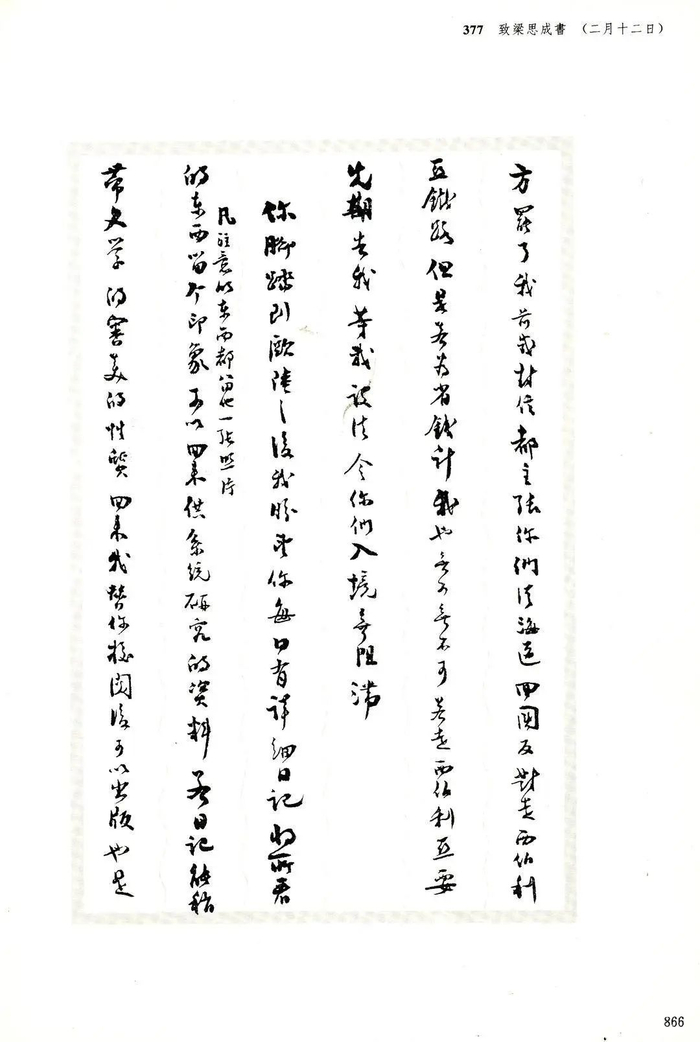 377 致梁思成書 （二月十二日）
方罷了我前幾封信都主張你們從海道回國反對走西伯利
亞鐵路但是若为省錢計我也無可無不可若走西伯利亞要
先期告我等我設法令你們入境無阻滯
你腳踏到歐陸之後我盼望你每日有詳細日記将所看
凡注意的东西都留他一張照片
的东西留个印象可以回来供系统研究的資料若日記能稍
帶文学的審美的性質回来我替你校閱後可以出版也是
866